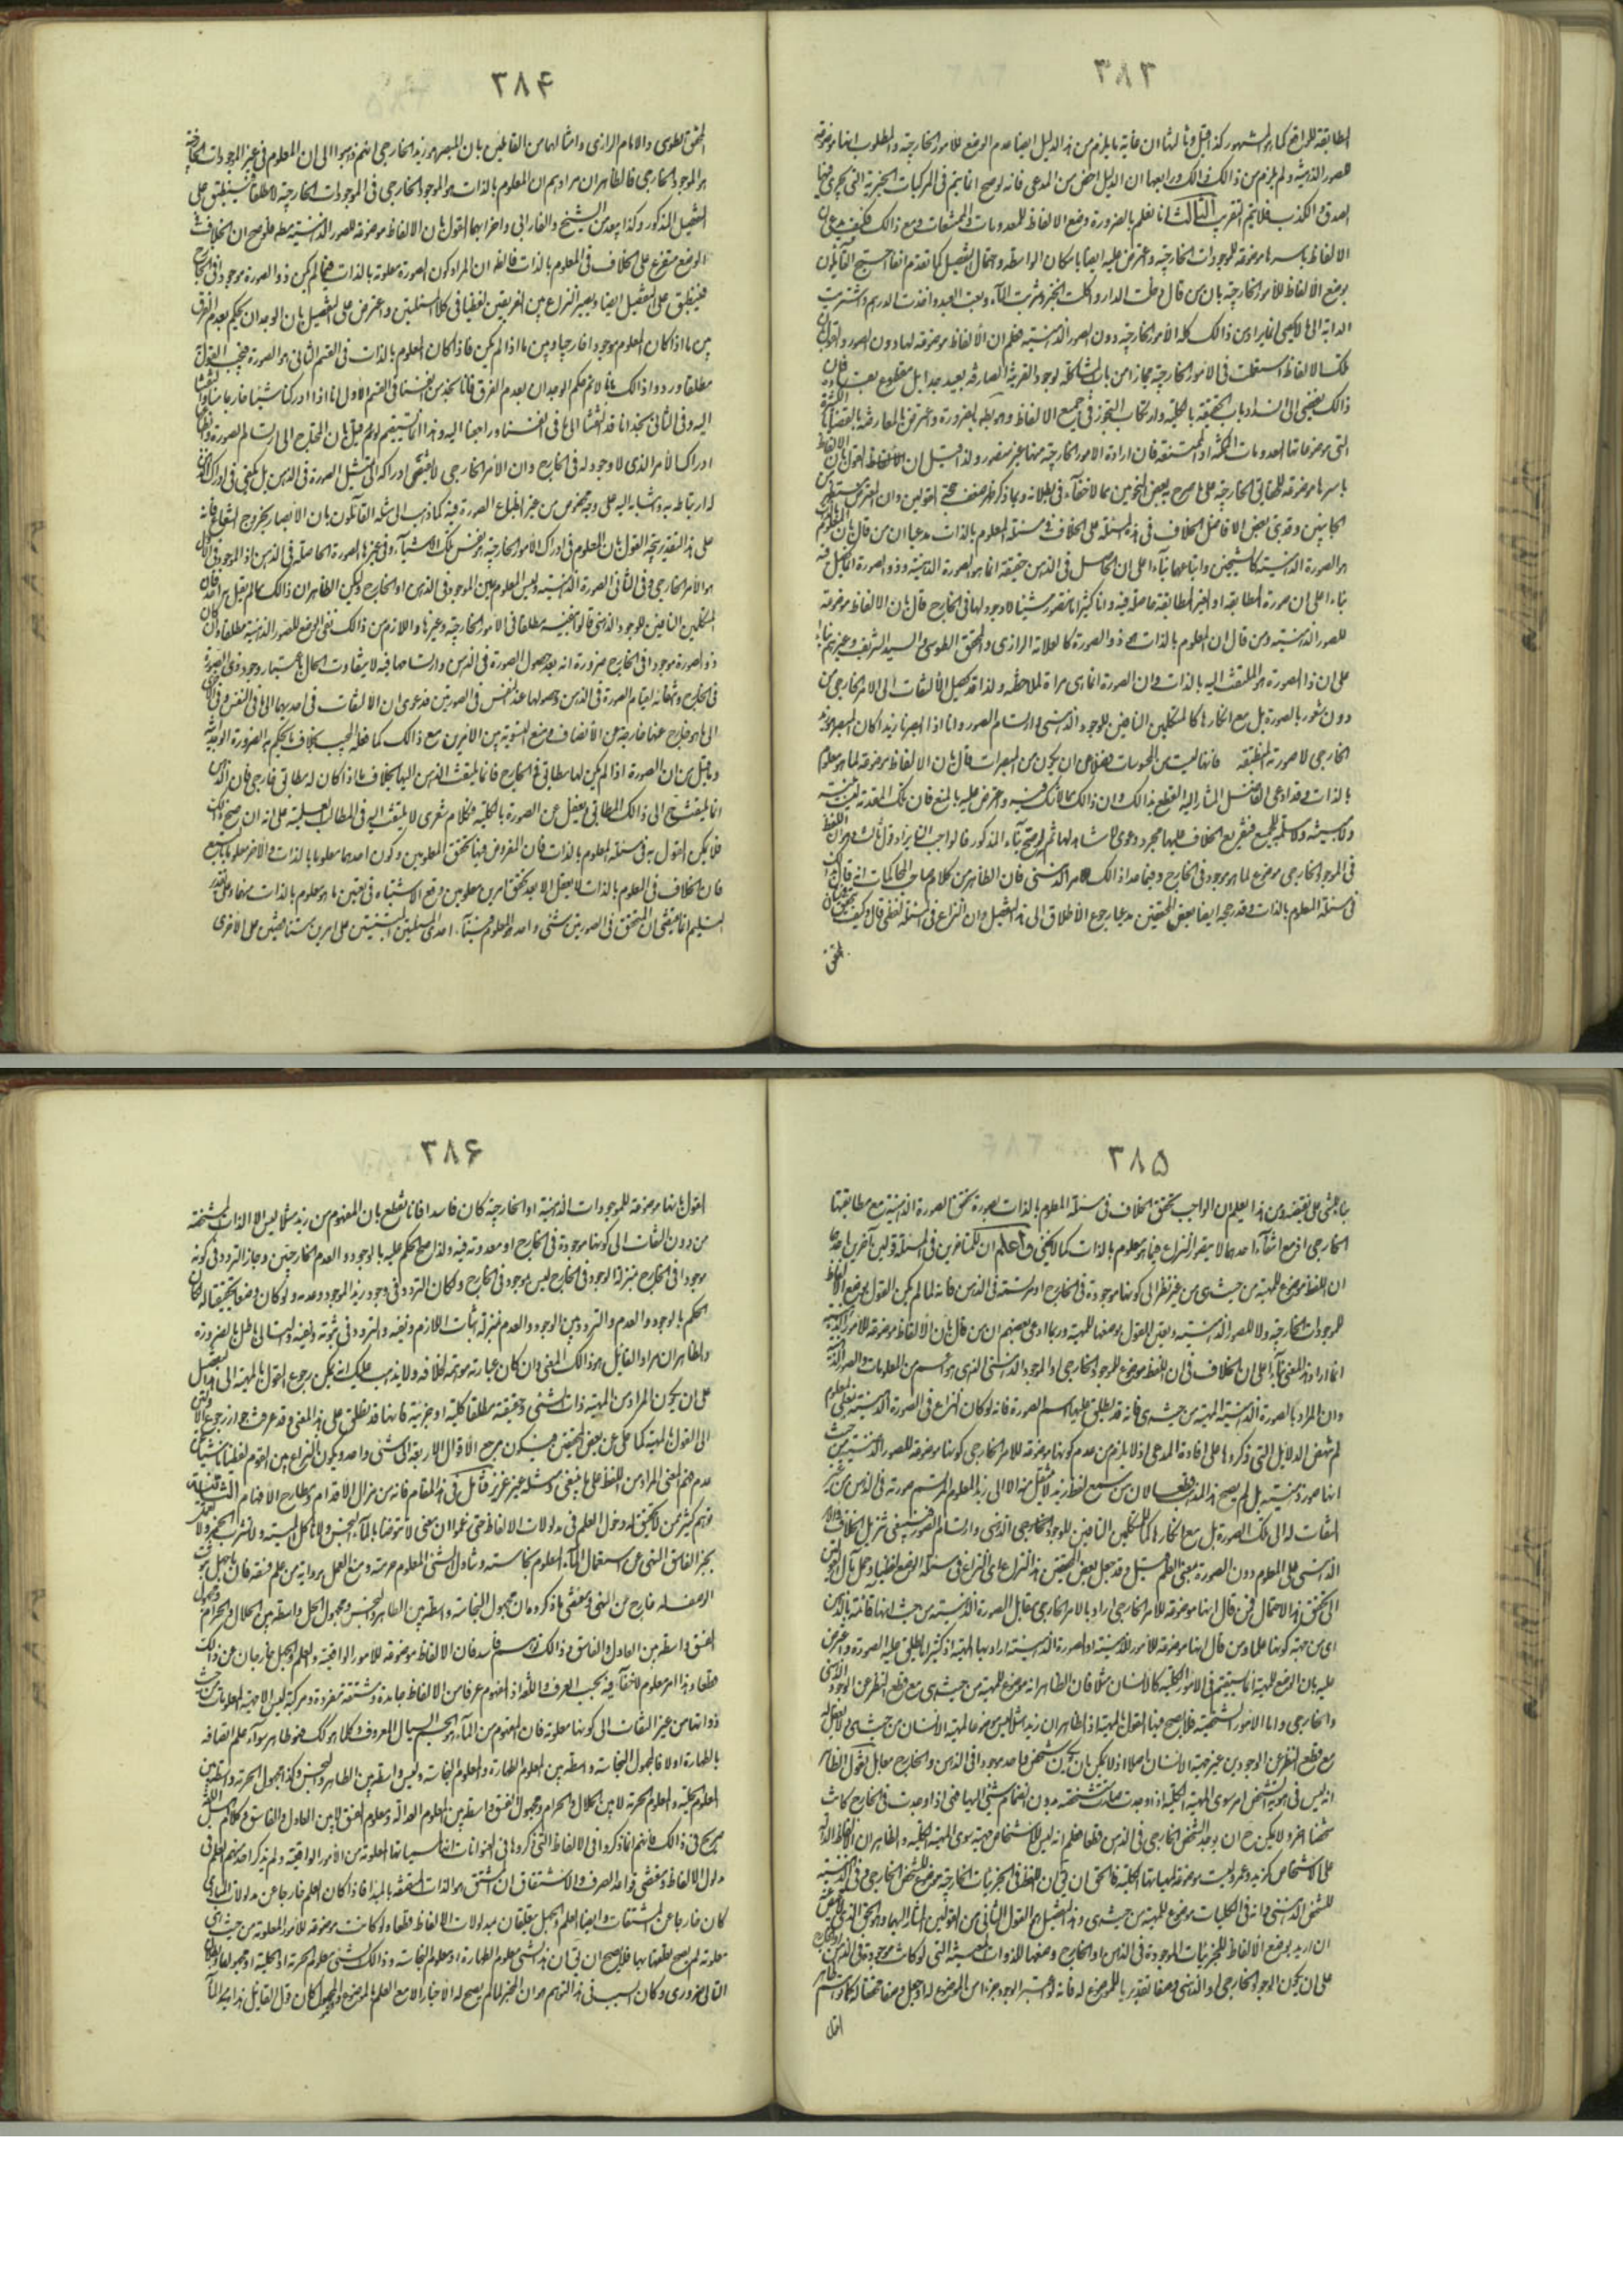 ٣٨٣
المطابقة للواقع كما هو المشهور كذا قيل وثالثها ان غاية ما يلزم من هذا الدليل ايضا عدم الوضع للأمور الخارجية والمطلوب انها موضوعة
للصور الذهنية ولم يلزم من ذالك ذالك ورابعها ان الدليل اخص من المدعى فانه لو صح انما يتم في المركبات الخبرية التي يجري فيها
الصدق والكذب فلا يتم التقريب الثالث انا نعلم بالضرورة وضع الالفاظ للمعدومات والممتنعات ومع ذالك فكيف يدعى ان
الالفاظ باسرها موضوعة للموجودات الخارجية واعترض عليه ايضا بامكان الواسطة واحتمال التفصيل كما تقدم انفا احتج القائلون
بوضع الألفاظ للأمور الخارجية بان من قال دخلت الدار واكلت الخبز وشربت الماء وبعت العبد واخذت الدرهم واشتريت
الدابة الى ما لا يحصى انما يراد من ذالك كله الأمور الخارجية دون الصور الذهنية فعلم ان الألفاظ موضوعة لها دون الصور والقول بان
تلك الالفاظ استعملت في الأمور الخارجية مجازا من باب المشاكلة لوجود القرينة الصارفة بعيد جدا بل مقطوع بعدمه فان
ذالك يفضي الى انسداد باب الحقيقة بالكلية وارتكاب التجوز في جميع الالفاظ وهو بط بالضرورة واعترض بالمعارضة بالقضايا الكثيرة
التي موضوعاتها المعدومات الممكنة او الممتنعة فان ارادة الأمور الخارجية منها غير متصور ولذا قيل ان الألفاظ القول بان الالفاظ
باسرها موضوعة للمعاني الخارجية على ما صرح به بعض النحويين مما لا خفاء في بطلانه وبما ذكر ظهر ضعف حجج القولين وان المعترض مستظهر من
الجانبين وقد بنى بعض الافاضل الخلاف في هذه المسئلة على الخلاف في مسئلة المعلوم بالذات مدعيا ان من قال بان المعلوم
هو الصورة الذهنية كالشيخين واتباعهما بناء على ان الحاصل في الذهن حقيقة انما هو الصورة الذهنية وذو الصورة انما يحصل فيه
بناء على ان صورة المطابقة او الغير المطابقة حاصلة فيه وانا كثيرا ما نتصور شيئا لا وجود لها في الخارج قال بان الالفاظ موضوعة
للصور الذهنية ومن قال ان المعلوم بالذات هو ذو الصورة كالعلامة الرازي والمحقق الطوسي والسيد الشريف وغيرهم بناء
على ان ذا الصورة هو الملتفت اليه بالذات وان الصورة انما هي مرآة لملاحظته ولذا قد يحصل الالتفات الى الامر الخارجي من
دون شعور بالصورة بل مع انكارها كالمتكلمين النافين للوجود الذهني وارتسام الصور وانا اذا ابصرنا زيدا كان المبصر هو زيد
الخارجي لا صورته المنطبعة فانها ليست من المحسوسات فضلا من ان يكون من المبصرات قال بان الالفاظ موضوعة لما هو معلوم
بالذات وقد ادعى الفاضل المشار اليه القطع بذالك وان ذالك مما لا شك فيه واعترض عليه بالمنع فان تلك المقدمة ليست بينة
ولا مبينة ولا مسلمة للجميع فتفريع الخلاف عليها مجرد دعوى لا شاهد لها ثم لو صح بناء المذكور فالواجب ان يراد قول ثالث وهو ان اللفظ
في الموجود الخارجي موضوع لما هو موجود في الخارج وفيما عدا ذالك للامر الذهني فان الظاهر من كلام صاحب المحاكمات انه قائل بذلك
في مسئلة المعلوم بالذات وقد رجحه ايضا بعض المحققين مدعيا رجوع الأطلاق الى هذا التفصيل وان النزاع في المسئلة لفظي قال وكيف
المحقق
٣٨۴
المحقق الطوسي والامام الرازي وامثالهما من القائلين بان المبصر هو زيد الخارجي انهم ذهبوا الى ان المعلوم في غير الموجودات الخارجية
هو الموجود الخارجي فالظاهر ان مرادهم ان المعلوم بالذات هو الموجود الخارجي في الموجودات الخارجية لا مطلقا فينطبق على
التفصيل المذكور وكذا يبعد من الشيخ والفارابي واضرابهما القول بان الالفاظ موضوعة للصور الذهنية مطلقا فلو صح ان الخلاف في
الوضع متفرع على الخلاف في المعلوم بالذات فالظ ان المراد كون الصورة معلومة بالذات فيما لم يكن ذو الصورة موجودا في الخارج
فينطبق على التفصيل ايضا ويصير النزاع بين الفريقين لفظيا في كلا المسئلتين واعترض على التفصيل بان الوجدان يحكم بعدم الفرق
بين ما اذا كان المعلوم موجودا خارجيا وبين ما اذا لم يكن فاذا كان المعلوم بالذات في القسم الثاني هو الصورة فيجب القول به
مطلقا وردوا ذالك بانا لا نم حكم الوجدان بعدم الفرق فانا نجد من انفسنا في القسم الأول انا اذا ادركنا شيئا خارجا منا التفتنا
اليه وفي الثاني نجد انا قد التفتنا الى ما في انفسنا وراجعنا اليه وهذا انما يستقيم لو لم قيل بان المحتاج الى ارتسام الصورة وانطباعها
ادراك الأمر الذي لا وجود له في الخارج وان الأمر الخارجي لا يقتضي ادراكه الى تمثل الصورة في الذهن بل يكفي في ادراك النفس
له ارتباطه به وانتسابه اليه على وجه مخصوص من غير انطباع الصورة فيه كما ذهب الى مثله القائلون بان الابصار بخروج الشعاع فانه
على هذا التقدير يتجه القول بان المعلوم في ادراك الأمور الخارجية هو نفس تلك الأشياء وفي غيرها الصورة الحاصلة في الذهن اذ الموجود في الأول
هو الأمر الخارجي وفي الثاني الصورة الذهنية وليس المعلوم بين الموجود في الذهن او الخارج ولكن الظاهر ان ذالك مما لم يقل به احد فان
المتكلمين النافين للوجود الذهني قالوا بنفيه مطلقا في الأمور الخارجية وغيرها واللازم من ذالك نفي الوضع للصور الذهنية مطلقا ولو كان
ذو الصورة موجودا في الخارج ضرورة انه بعد حصول الصورة في الذهن وارتسامها فيه لا يتفاوت الحال باعتبار وجود ذي الصورة
في الخارج وانتفائه لقيام الصورة في الذهن وحصولها عند النفس في الصورتين فدعوى ان الألتفات في احديهما الى ما في النفس وفي الاخرى
الى ما هو خارج عنها خارجة عن الأنصاف ومنع التسوية بين الأمرين مع ذالك كما فعله المجيب بخلاف ما يحكم به الضرورة الوجدانية
وما قيل من ان الصورة اذا لم يكن لها مطابق في الخارج فانما يلتفت الذهن اليها بخلاف ما اذا كان له مطابق خارجي فان الذهن
انما يلتفت ح الى ذالك المطابق ويغفل عن الصورة بالكلية فكلام شعري لا يلتفت اليه في المطالب العلمية على انه ان صح ذلك
فلا يمكن القول به في مسئلة المعلوم بالذات فان المفروض فيها تحقق المعلومين وكون احدهما معلوما بالذات والأخر معلوما بالتبع
فان الخلاف في المعلوم بالذات لا يعقل الا بعد تحقق امرين معلومين وقع الاشتباه في تعيين ما هو معلوم بالذات منهما وعلى تقدير
التسليم انما يقتضي ان المتحقق في الصورتين شئ واحد هو المعلوم فبناء احدى المسئلتين المبنيتين على امرين متناقضين على الأخرى
٣٨۵
بناء شئ على نقيضه ومن هذا يعلم ان الواجب تحقق الخلاف في مسئلة المعلوم بالذات بصورة تحقق الصورة الذهنية مع مطابقتها
الخارجي اذ مع انتفاء احدهما لا يتصور النزاع فيما هو معلوم بالذات كما لا يخفى واعلم ان للمتأخرين في المسئلة قولين آخرين احدهما
ان اللفظ موضوع للمهية من حيث هي من غير نظر الى كونها موجودة في الخارج او مرتسمة في الذهن فانه لما لم يمكن القول بوضع الالفاظ
للموجودات الخارجية ولا للصور الذهنية وتعين القول بوضعها للمهية وربما ادعى بعضهم ان من قال بان الألفاظ موضوعة للامور الذهنية
انما اراد هذا المعنى بناء على ان الخلاف في ان اللفظ موضوع للموجود الخارجي او الموجود الذهني الذي هو اسم من المعلومات والصور الذهنية
وان المراد بالصورة الذهنية المهية من حيث هي فانه قد يطلق عليها اسم الصورة فانه لو كان النزاع في الصورة الذهنية بمعنى المعلوم
لم تنهض الدلايل التي ذكروها على افادة المدعى اذ لا يلزم من عدم كونها موضوعة للامر الخارجي كونها موضوعة للصور الذهنية من حيث
انها صور ذهنية بل لم يصح هذا المذهب قطعا لان من سمع لفظ زيد لا ينتقل منه الا الى زيد المعلوم المرتسم صورته في الذهن من غير
التفات له الى تلك الصورة بل مع انكارها كالمتكلمين النافين للوجود الخارجي الذهني وارتسام الصور فينبغي تنزيل الخلاف والامر
الذهني على المعلوم دون الصورة بمعنى العلم قيل وقد جعل بعض المحققين هذا النزاع على النزاع في مسئلة الوضع لفظيا وحمل مآل القولين
الى تحقق هذا الاحتمال فمن قال انها موضوعة للأمر الخارجي اراد بالامر الخارجي مقابل الصورة الذهنية من حيث انها قائمة بالذهن
اي من جهة كونها علما ومن قال انها موضوعة للأمور الذهنية او الصورة الذهنية اراد بها المهية اذ كثيرا ما يطلق عليه الصورة واعترض
عليه بان الوضع للمهية انما يستقيم في الأمور الكلية كالانسان مثلا فان الظاهر انه موضوع للمهية من حيث هي مع قطع النظر عن الوجود الذهني
والخارجي واما الامور الشخصية فلا يصح فيها القول بالمهية اذ الظاهر ان زيدا مثلا ليس موضوعا لمهية الانسان من حيث هي لا يعقل له
مع قطع النظر عن الوجودين غير مهية الانسان اصلا اذ لا يمكن بان يكون شخص واحد موجودا في الذهن والخارج مقابل القول الظاهر
انه ليس في هوية الشخص امر سوى المهية الكلية اذا وجدت صارت شخصية بدون انضمام شئ اليها فهي اذا وجدت في الخارج كانت
شخصا اخر ولا يمكن ح ان يوجد الشخص الخارجي في الذهن قطعا فعلم انه ليس للاشخاص مهية سوى المهية الكلية والظاهر ان الالفاظ الدالة
على الاشخاص كزيد وعمرو ليست موضوعة لمهياتها الكلية فالحق ان يق ان اللفظ في الجزئيات الخارجية موضوع للشخص الخارجي وفي الذهنية
للشخص الذهني وانه في الكليات موضوع للمهية من حيث هي وهذا التفصيل هو القول الثاني من القولين المشار اليهما وهو الحق الذي لا محيص عنه
ان اريد بوضع الألفاظ للجزئيات الموجودة في الذهن او الخارج وضعها للذوات المعينة التي لو كانت موجودة في الذهن او الخارج
على ان يكون الوجود الخارجي او الذهني وصفا تقديريا للموضوع له فانه لو اعتبر الوجود جزءا من الموضوع له او جعل وصفا محققا له كما هو ظاهر
القول
٣٨۶
القول بانها موضوعة للموجودات الذهنية او الخارجية كان فاسدا فانا نقطع بان المفهوم من زيد مثلا ليس الا الذات المشخصة
من دون التفات الى كونها موجودة في الخارج او معدومة فيه ولذا صح الحكم عليه بالوجود والعدم الخارجيين وجاز التردد في كونه
موجودا في الخارج بمنزلة الموجود في الخارج ليس موجود في الخارج ولكان التردد في وجود زيد الموجود وعدمه ولو كان وصفا تحقيقيا له لكان
الحكم بالوجود والعدم والتردد بين الوجود والعدم بمنزلة اثبات اللازم ونفيه والتردد في ثبوته ونفيه والتالي باطل بالضرورة
والظاهر ان مراد القائل هو ذالك المعنى وان كان عبارته موهمة بخلافه ولا يذهب عليك انه يمكن رجوع القول بالمهية الى التفصيل بناء
على ان يكون المراد من المهية ذات الشئ وحقيقته مطلقا كلية او جزئية فانها قد تطلق على هذا المعنى وقد عرفت جواز رجوع الاولين
الى القول بالمهية كما حكى عن بعض المحققين فيكون مرجع الأقوال الاربعة الى شئ واحد ويكون النزاع بين القوم لفظيا ناشيا من
عدم فهم المعنى المراد من اللفظ على ما ينبغي ومثله غير عزيز فتأمل في هذا المقام فانه من مزال الأقدام ومطارح الأفهام الثاني قد
توهم كثير ممن لا تحقيق له دخول العلم في مدلولات الالفاظ حتى زعموا ان معنى لا تتوضأ بالماء النجس ولا تأكل الميتة ولا تشرب الخمر ولا تعمل
بخبر الفاسق النهي عن استعمال الماء المعلوم نجاسته وتناول الشئ المعلوم حرمته ومنع العمل برواية من علم فسقه فان ما جهل ثبوت
الوصف له خارج عن النهي ومقتضى ما ذكروه ان مجهول النجاسة واسطة بين الطاهر والنجس ومجهول الحل واسطة بين الحلال والحرام ومجهول
الفسق واسطة بين العادل والفاسق وذالك توهم فاسد فان الالفاظ موضوعة للأمور الواقعية والعلم والجهل خارجان عن ذالك
قطعا وهذا امر معلوم لا خفاء فيه بحسب العرف واللغة اذ المفهوم عرفا من الالفاظ جامدة ومشتقة مفردة ومركبة ليس الا مهية المعلومات من حيث
ذواتها من غير التفات الى كونها معلومة فان المفهوم من الماء هو الجسم السيال المعروف فكلما هو كك فهو طاهر سواء علم اتصافه
بالطهارة او لا فالمجهول النجاسة واسطة بين المعلوم الطهارة والمعلوم النجاسة وليس واسطة بين الطاهر والنجس وكذا مجهول الحرمة واسطة بين
المعلوم الحلية والمعلوم الحرمة لا بين الحلال والحرام ومجهول الفسق واسطة بين المعلوم العدالة ومعلوم الفسق لا بين العادل والفاسق وكلام اهل اللغة
صريح في ذالك فانهم انما ذكروا في الالفاظ التي ذكروها في العنوانات انما مسمياتها المعلومة من الأمور الواقعية ولم يذكر احد منهم العلم في
مدلول الالفاظ ومقتضى قواعد الصرف والاشتقاق ان المشتق هو الذات المتصفة بالمبدء فاذا كان العلم خارجا عن مدلولات المبادي
كان خارجا عن المشتقات وايضا العلم والجهل يتعلقان بمدلولات الالفاظ قطعا ولو كانت موضوعة للأمور المعلومة من حيث هي
معلومة لم يصح تعلقهما بها فلا يصح ان يق ان هذا الشئ معلوم الطهارة او معلوم النجاسة وذالك الشئ معلوم الحرمة او الحلية او مجهولهما وبطلان
التالي ضروري وكان السبب في هذا التوهم هو ان المخبر لما لم يصح له الأخبار الا مع العلم بالموضوع والمحمول كان قول القائل هذا زيد الماء